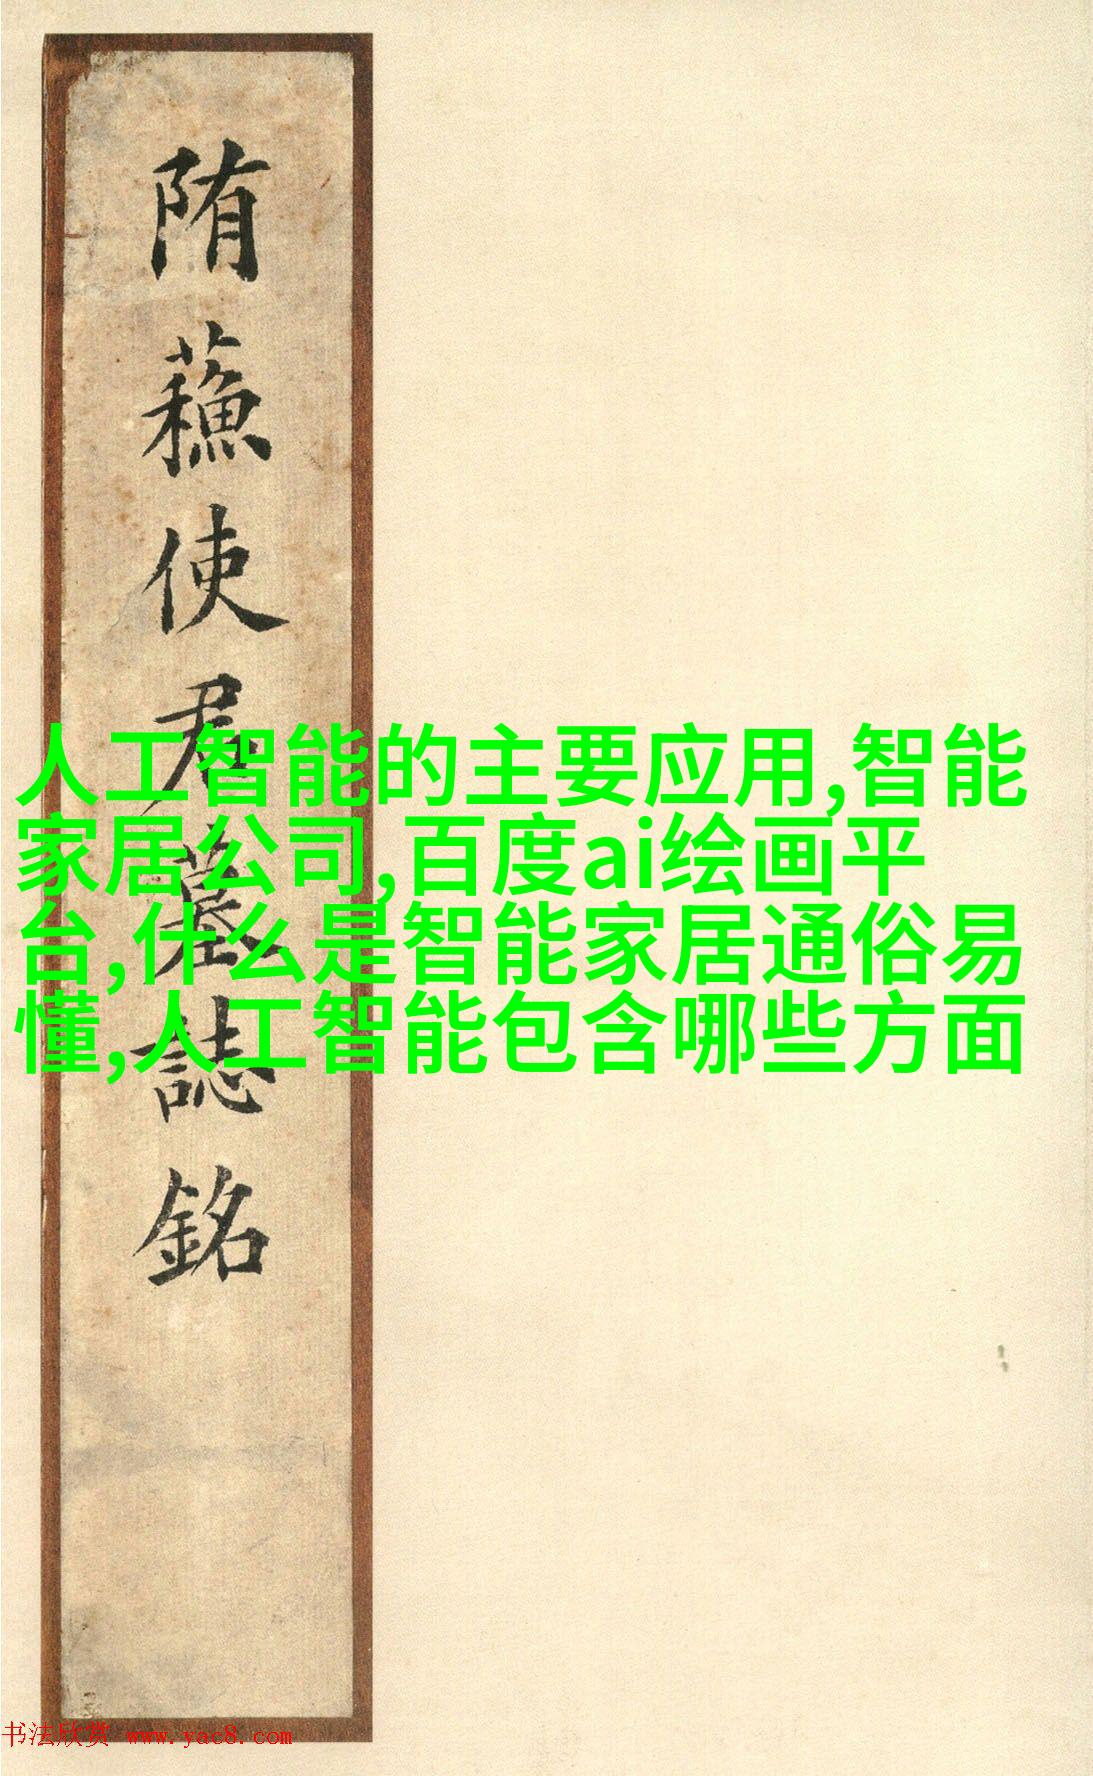 隋蘓使君墓誌銘
人工智能的主要应用,智能
家居公司,百度ai绘画平
台,什么是智能家居通俗易
懂,人工智能包含哪些方面
书法欣赏 www.yac8.com